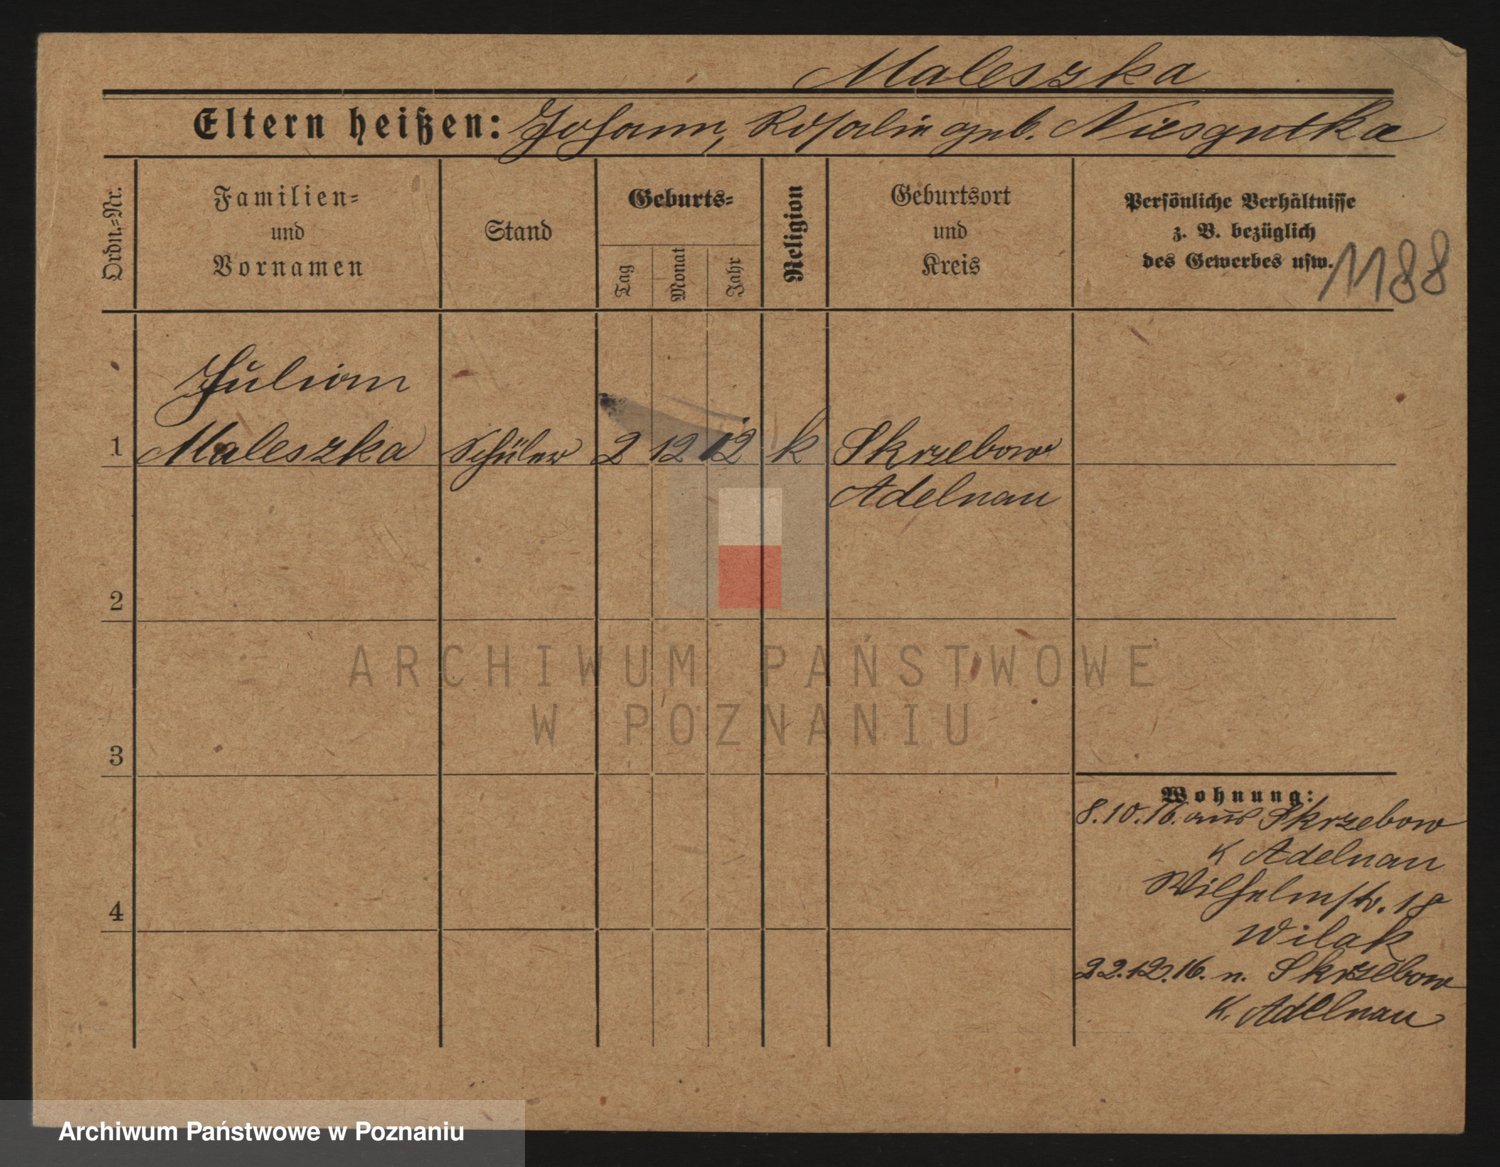 Maleszka
Eltern heißen: Johann, Rosalie geb. Niesgutka
Ordn.-Nr.
Familien-
und
Vornamen
Stand
Geburts-
Tag
Monat
Jahr
Religion
Geburtsort
und
Kreis
Persönliche Verhältnisse
z. B. bezüglich
des Gewerbes usw.
1188
Julian
1 Maleszka Schüler 2 12 12 k Skrzebow
Adelnau
2
ARCHIWUM PAŃSTWOWE
W POZNANIU
3
Wohnung:
8.10.16. aus Skrzebow
K Adelnau
Wilhelmstr. 18
4
Wilak
22.12.16. n. Skrzebow
K. Adelnau
Archiwum Państwowe w Poznaniu